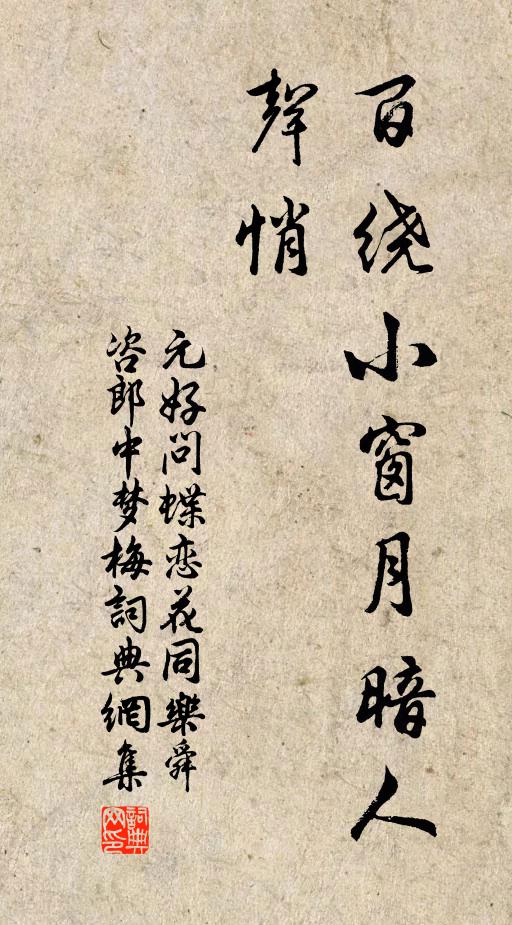 百绕小窗月暗人
聲悄
元好问蝶恋花同樂舜
咨郎中梦梅詞典網集
詞典
网印